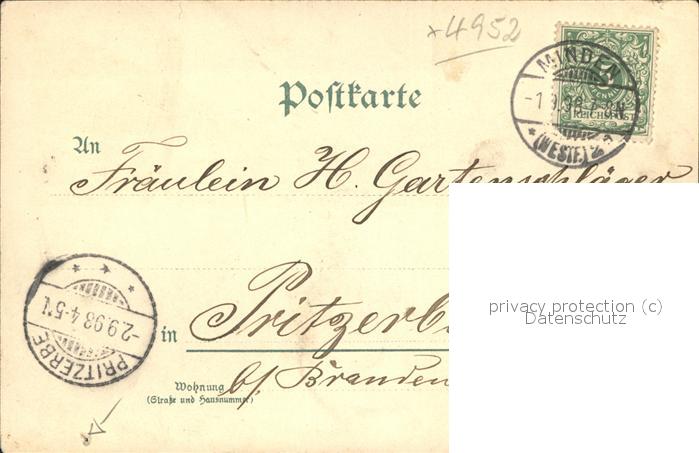 x4952
5
REICHSPOST
MINDEN
-1.9.98.7-8N.
* (WESTF.) 2 *
Postkarte
An
Fräulein H. Gartenschläger
privacy protection (c)
Datenschutz
-2.9.98.4-5N
PRITZERBE
in Pritzerb
Wohnung
(Straße und Hausnummer)
b/ Branden